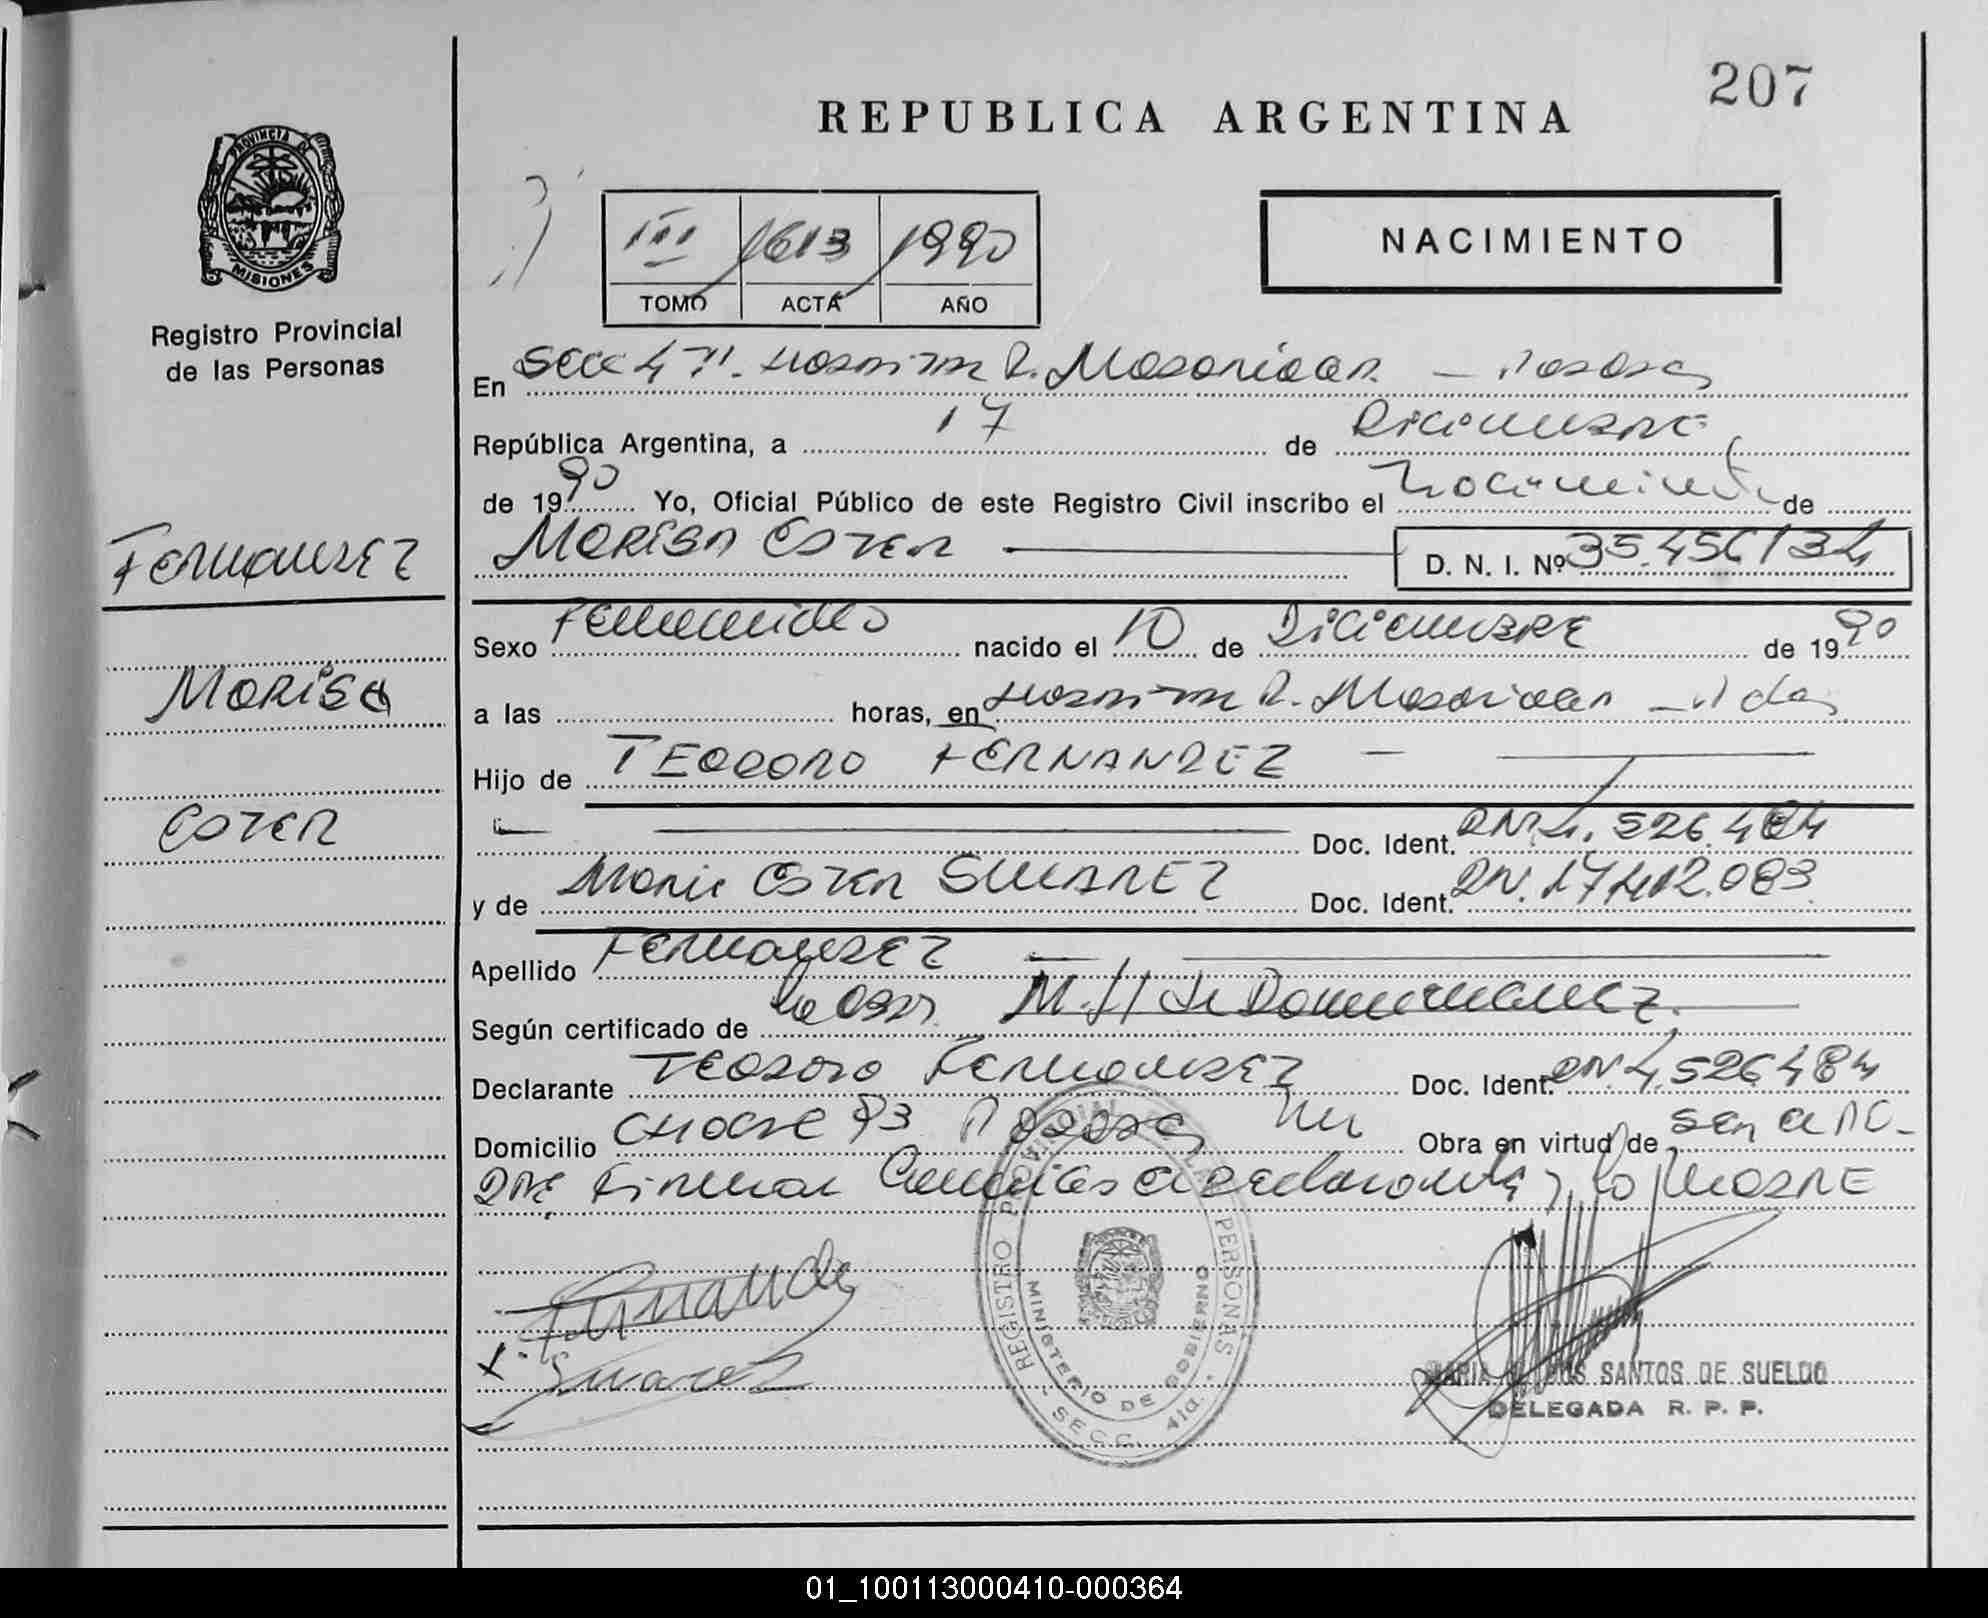 207
REPUBLICA ARGENTINA
PROVINCIA DE
MISIONES
Registro Provincial
de las Personas
III 1613 1990
TOMO ACTA AÑO
NACIMIENTO
En Secc 4ta. Hospital R. Madariaga - Posadas
República Argentina, a 17 de Diciembre
de 1990 Yo, Oficial Público de este Registro Civil inscribo el Nacimiento de
Fernandez
Marisa Ester D. N. I. Nº 35.456134
Sexo Femenino nacido el 10 de Diciembre de 1990
Marisa
a las horas, en Hospital R. Madariaga - Pdas
Hijo de TEODORO FERNANDEZ
Ester
Doc. Ident. DNI 4.526.484
y de Maria Ester SUAREZ Doc. Ident. DNI. 17.412.083
Apellido Fernandez
Según certificado de la Obst. M. H de Dominguez
Declarante Teodoro Fernandez Doc. Ident. DNI. 4.526.484
Domicilio Chacre 93 Posadas Obra en virtud de ser el Pa-
dre, Firman el declarante y la Madre
Fernandez
x. Suarez
REGISTRO PROVINCIAL DE LAS PERSONAS
MINISTERIO DE GOBIERNO
- SECC. 4ta. -
MARIA DOS SANTOS DE SUELDO
DELEGADA R. P. P.
01_100113000410-000364